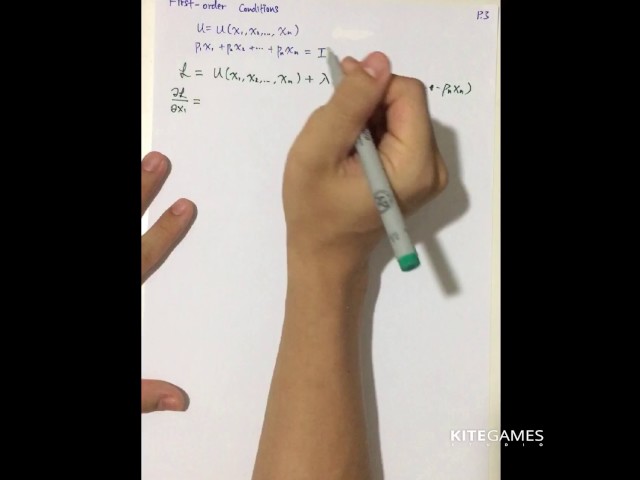 First-order Conditions
P.3
U = U(x₁, x₂, ..., xₙ)
p₁x₁ + p₂x₂ + ... + pₙxₙ = I
ℒ = U(x₁, x₂, ..., xₙ) + λ - pₙxₙ)
∂ℒ/∂x₁ =
KITEGAMES
STUDIO